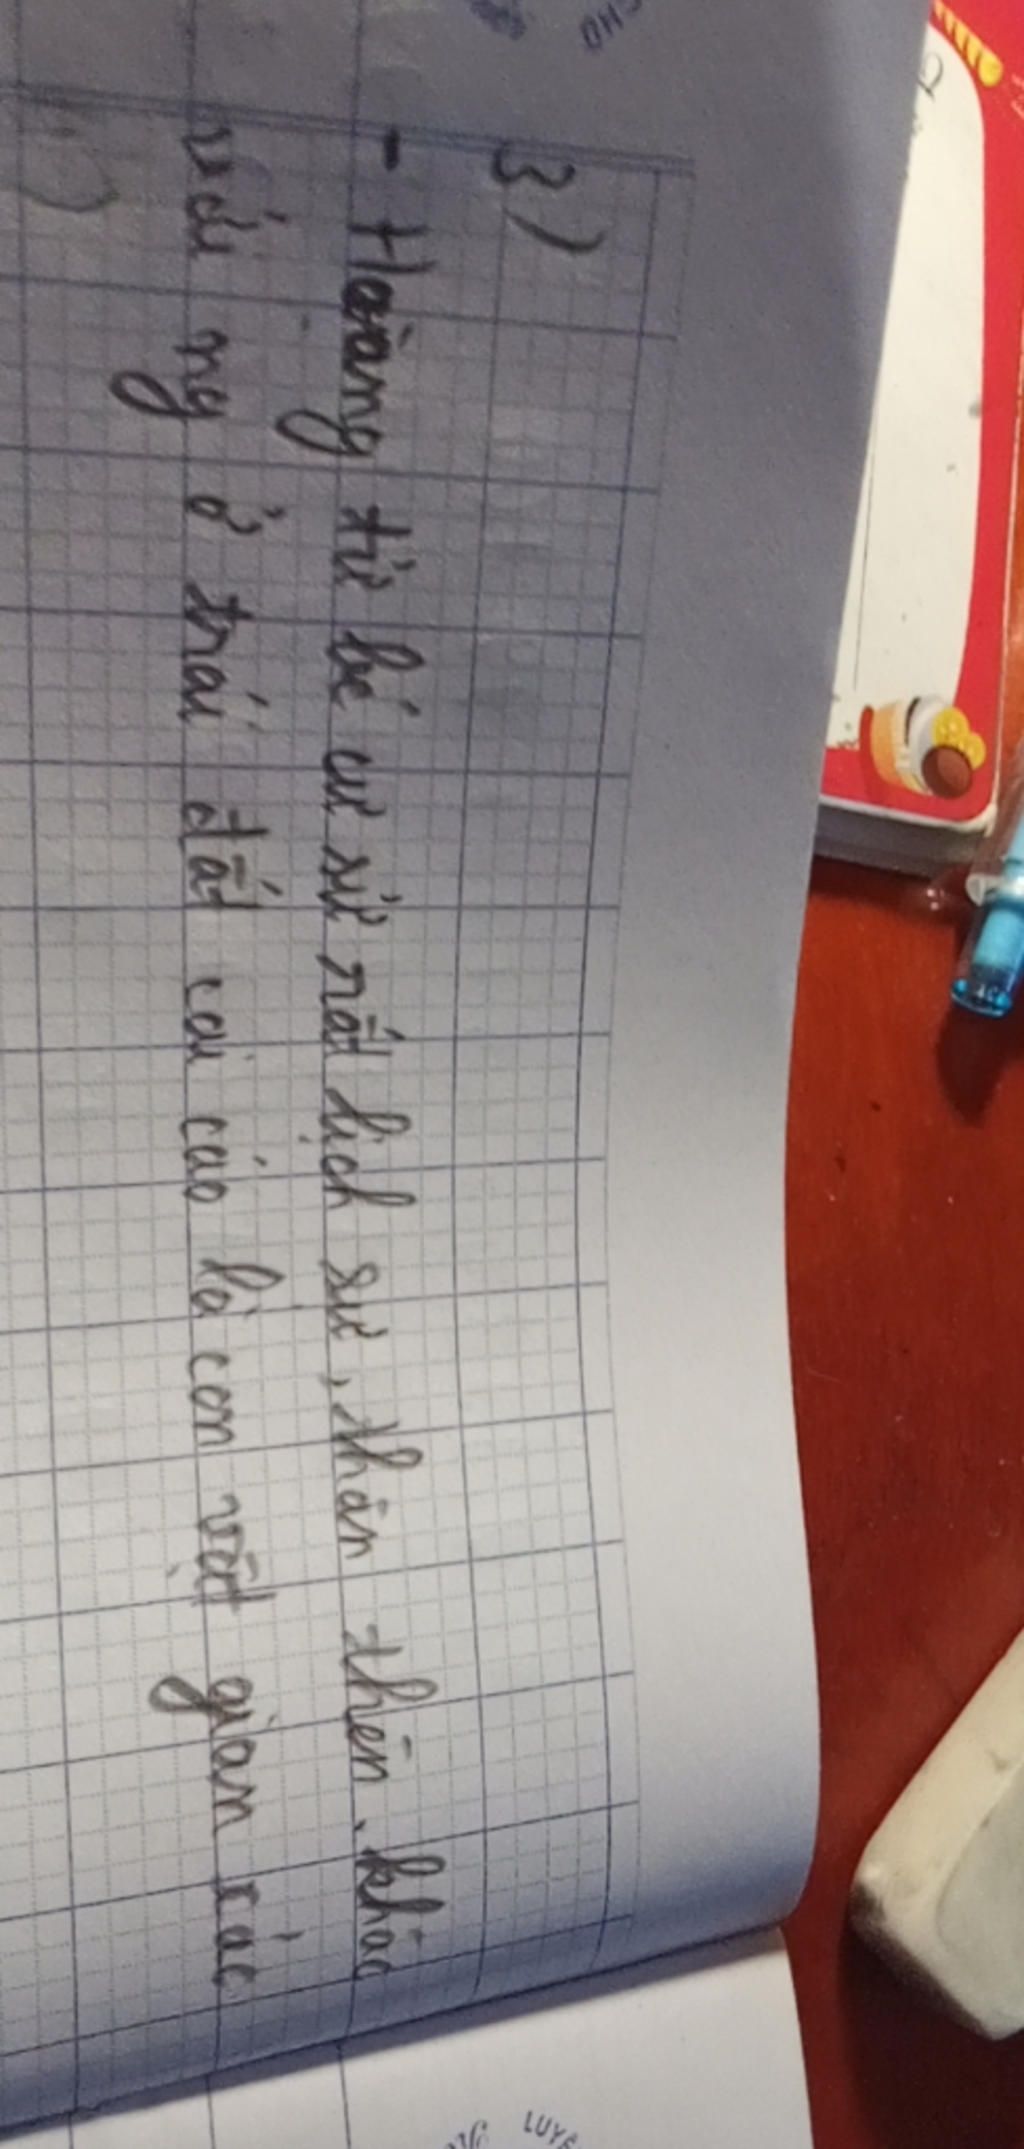 3)
- Hoàng tử bé cư sử rất lịch sự, thân thiện, khác
với ng ở trái đất coi cáo là con vật gian xác
CHO
LUYỆ